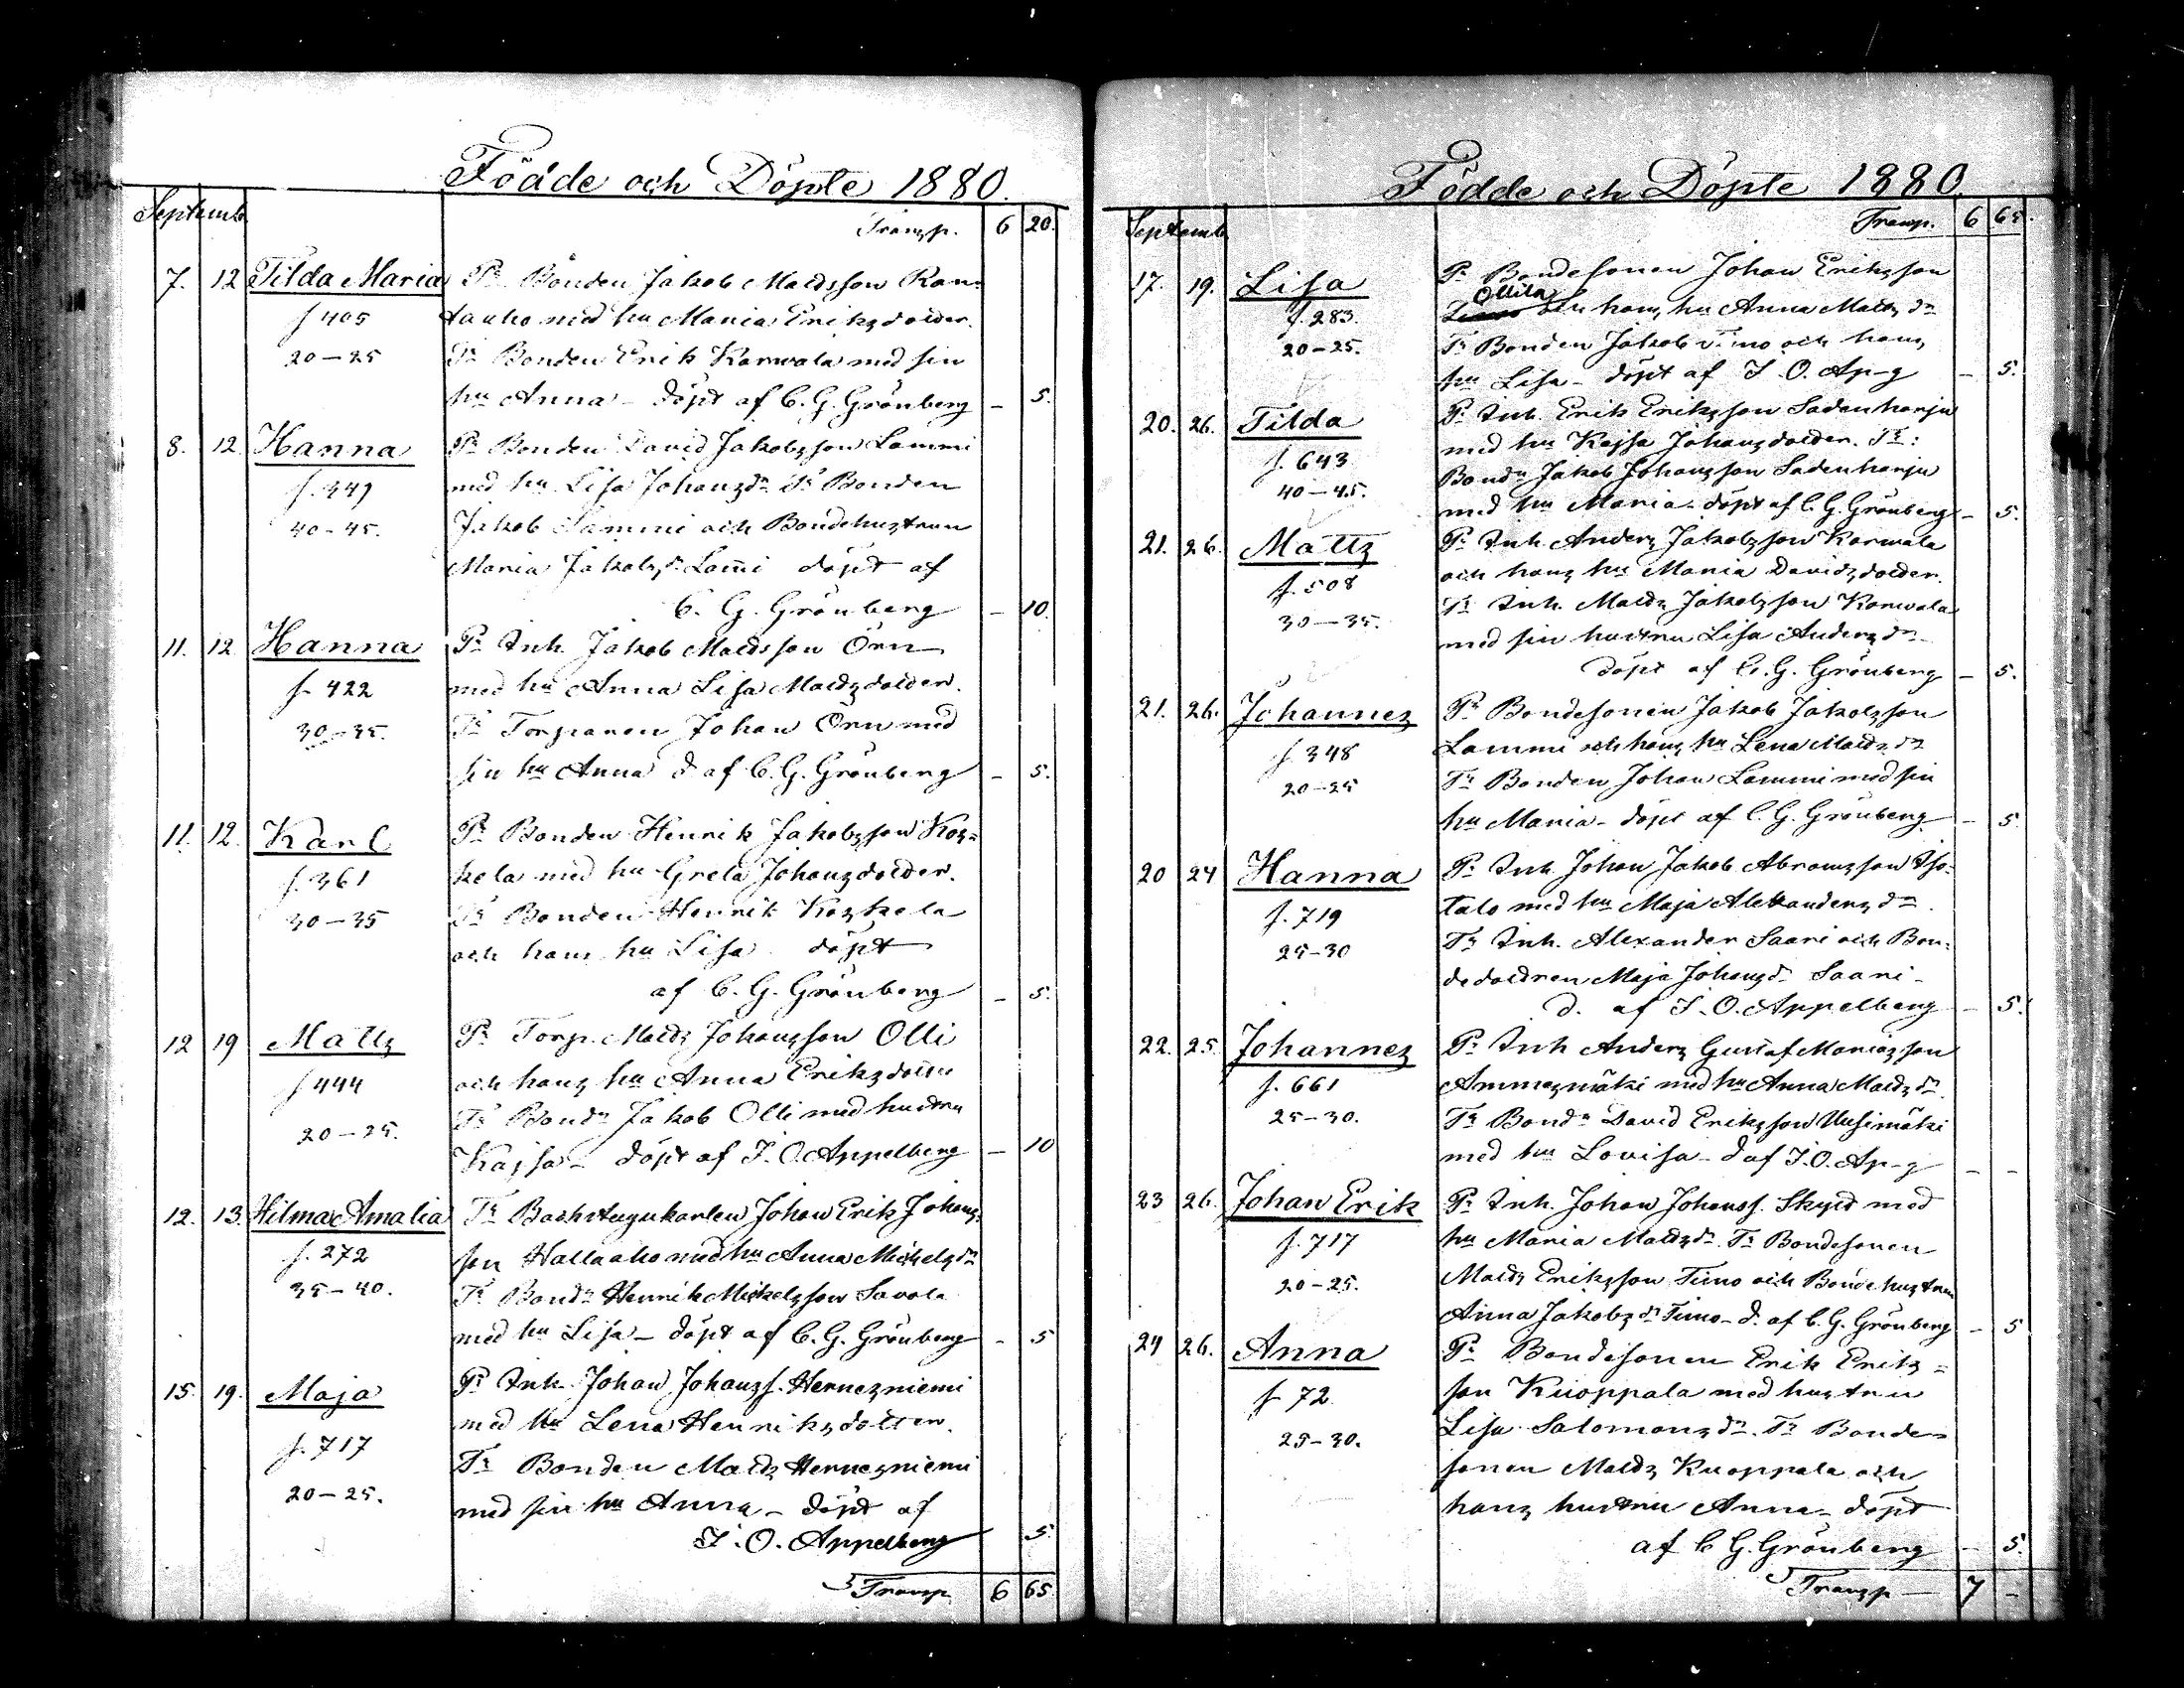 Födde och Döpte 1880.
Septemb.
Transp. 6 20.
7. 12 Tilda Maria Pr Bonden Jakob Mattsson Ran-
f 405 taaho med hu Maria Eriksdotter.
20-25 Tr Bonden Erik Karwala med sin
hu Anna - döpt af C. G. Grönberg - 5.
8. 12. Hanna Pr Bonden David Jakobsson Lammi
f. 349 med hu Lisa Johansdr Tr Bonden
40-45. Jakob Lammi och Bondehustrun
Maria Jakobsdr Lam̃i döpt af
C. G. Grönberg - 10.
11. 12 Hanna Pr Inh. Jakob Mattsson Örn
f 422 med hu Anna Lisa Mattsdotter.
30-35. Tr Torparen Johan Örn med
sin hu Anna d. af C. G. Grönberg - 5.
11. 12. Karl Pr Bonden Henrik Jakobsson Kos-
f. 361 kela med hu Greta Johansdotter.
30-35 Tr Bonden Henrik Koskela
och hans hu Lisa döpt
af C. G. Grönberg - 5.
12 19 Matts Pr Torp. Matts Johansson Olli
f 444 och hans hu Anna Eriksdotter
20-25. Tr Bondn Jakob Olli med hustru
Kajsa - döpt af I. O. Appelberg - 10
12. 13. Hilma Amalia Pr Backstugukarlen Johan Erik Johans-
f. 272 son Hallaaho med hu Anna Michelsdr
35-40. Tr Bondn Henrik Mickelsson Savola
med hu Lisa - döpt af C. G. Grönberg - 5
15. 19. Maja Pr Inh. Johan Johanss. Hernesniemi
f. 717 med hu Lena Henriksdotter.
20-25. Tr Bonden Matts Hernesniemi
med sin hu Anna - döpt af
I. O. Appelberg 5.
Transp 6 65.
Födde och Döpte 1880.
Septemb.
Transp. 6 65.
17. 19. Lisa Pr Bondesonen Johan Eriksson
Ollila
f. 283. Timo och hans hu Anna Mattsdr
20-25. Tr Bonden Jakob Timo och hans
hu Lisa - döpt af I. O. Ap-g - 5.
20. 26. Tilda Pr Inh. Erik Eriksson Sadenharju
f. 643 med hu Kajsa Johansdotter. Tr:
40-45. Bondn Jakob Johansson Sadenharju
med hu Maria - döpt af C. G. Grönberg - 5.
21. 26. Matts Pr Inh. Anders Jakobsson Karwala
f. 508 och hans hu Maria Davidsdotter.
30-35. Tr Inh. Matts Jakobsson Karwala
med sin hustru Lisa Andersdr -
döpt af C. G. Grönberg - 5.
21. 26. Johannes Pr Bondesonen Jakob Jakobsson
f. 348 Lammi och hans hu Lena Mattsdr
20-25 Tr Bonden Johan Lammi med sin
hu Maria - döpt af C. G. Grönberg - 5
20 24 Hanna Pr Inh. Johan Jakob Abramsson Iso-
f. 719 talo med hu Maja Alexandersdr.
25-30 Tr Inh. Alexander Saari och Bon-
dedottren Maja Johansdr Saari -
d. af I. O. Appelberg - 5.
22. 25. Johannes Pr Inh Anders Gustaf Mariasson
f. 661 Ammesmäki med hu Anna Mattsdr
25-30. Tr Bondn David Eriksson Uusimäki
med hu Lovisa - d af I. O. Ap-g - -
23 26. Johan Erik Pr Inh. Johan Johanss. Skyet med
f. 717 hu Maria Mattsdr. Tr Bondesonen
20-25. Matts Eriksson Timo och Bondehustrun
Anna Jakobsdr Timo - d. af C. G. Grönberg - 5
24 26. Anna Pr Bondesonen Erik Eriks-
f 72. son Kuoppala med hustru
25-30. Lisa Salomonsdr. Tr Bonde-
sonen Matts Kuoppala och
hans hustru Anna - döpt
af C G. Grönberg - 5.
Transp - 7 -